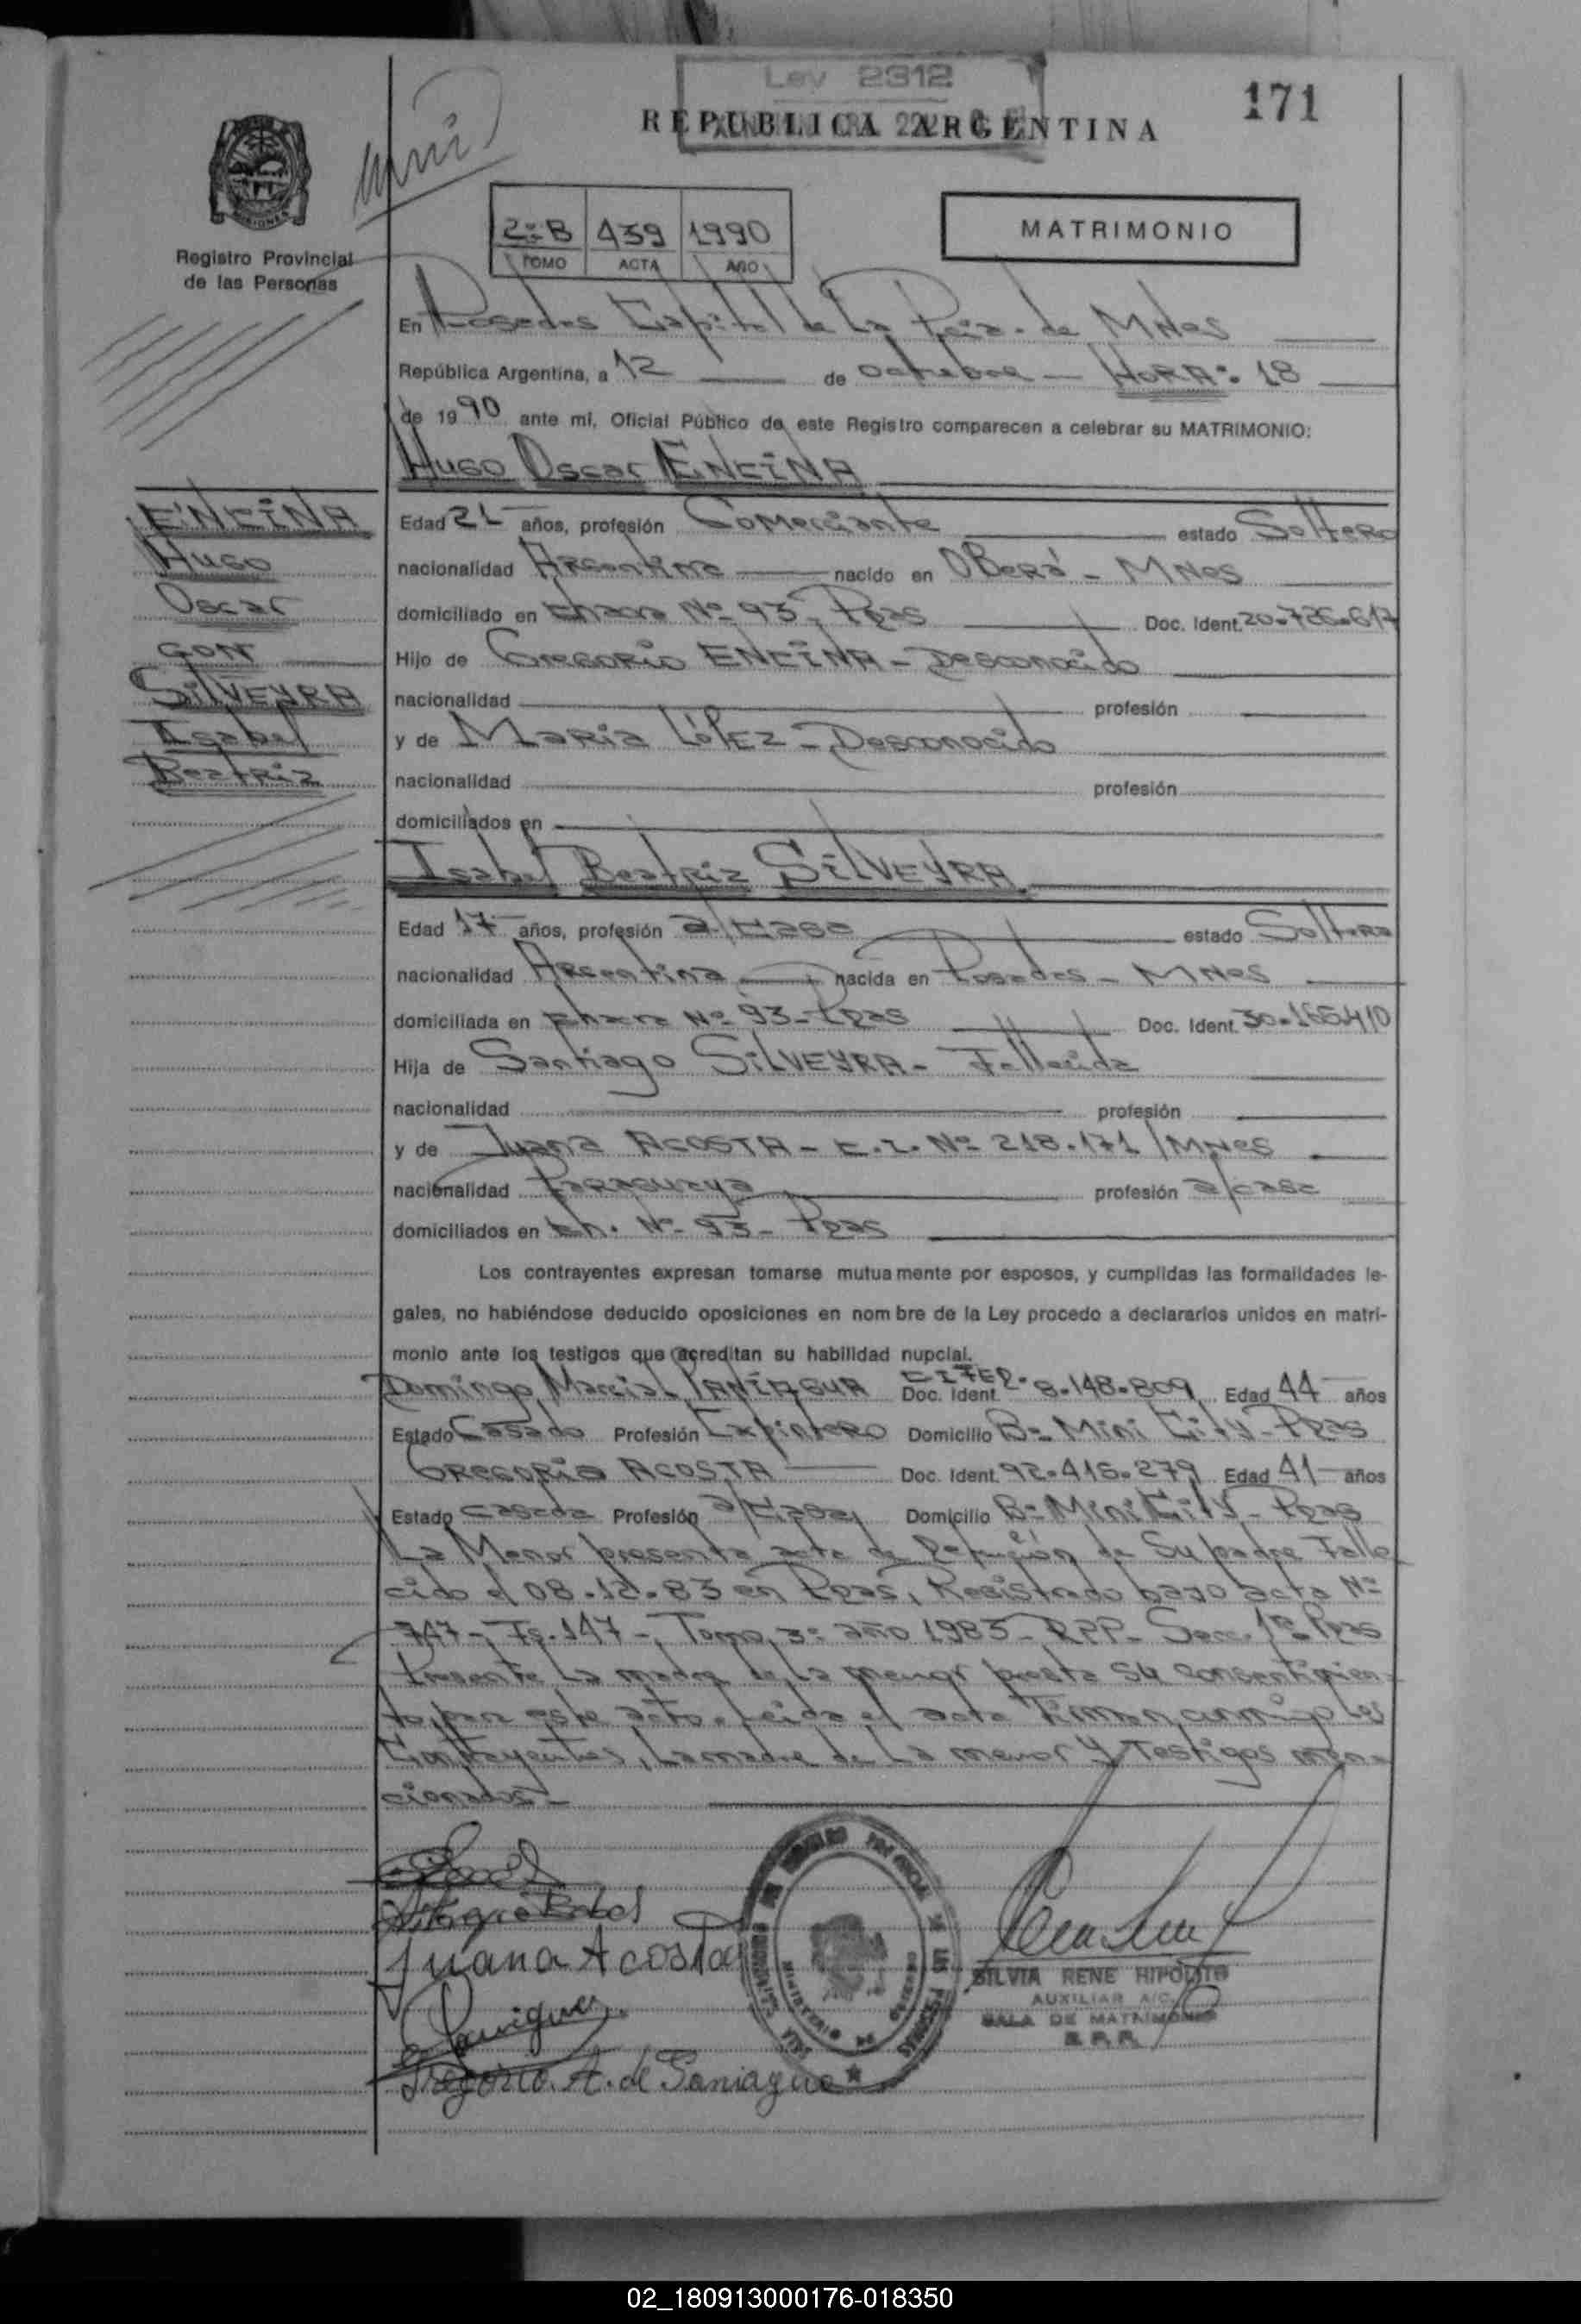 Ley 2312
171
REPUBLICA ARGENTINA
MISIONES
Registro Provincial
de las Personas
2º B 439 1990
TOMO ACTA AÑO
MATRIMONIO
En Posadas Capital de La Pcia. de MNes
República Argentina, a 12 de octubre - HORA: 18
de 1990 ante mi, Oficial Público de este Registro comparecen a celebrar su MATRIMONIO:
Hugo Oscar ENCINA
ENCINA
Hugo
Oscar
con
SILVEYRA
Isabel
Beatriz
Edad 21 años, profesión Comerciante estado Soltero
nacionalidad Argentina nacido en Oberá - MNes
domiciliado en Chacra Nº 93 - Ppas Doc. Ident. 20.726.617
Hijo de Gregorio ENCINA - Desconocido
nacionalidad profesión
y de Maria López - Desconocido
nacionalidad profesión
domiciliados en
Isabel Beatriz SILVEYRA
Edad 17 años, profesión a/casa estado Soltera
nacionalidad Argentina nacida en Posadas - MNes
domiciliada en Chacra Nº 93 - Ppas Doc. Ident. 30.165.410
Hija de Santiago SILVEYRA - Fallecido
nacionalidad profesión
y de Juana ACOSTA - C.I. Nº 218.171/MNes
nacionalidad Paraguaya profesión a/casa
domiciliados en Ch. Nº 93 - Ppas
Los contrayentes expresan tomarse mutuamente por esposos, y cumplidas las formalidades le-
gales, no habiéndose deducido oposiciones en nombre de la Ley procedo a declararlos unidos en matri-
monio ante los testigos que acreditan su habilidad nupcial.
Domingo Marcial PANIAGUA Doc. Ident. 8.148.809 Edad 44 años
Estado Casado Profesión Carpintero Domicilio Bº Mini City - Ppas
Gregoria ACOSTA Doc. Ident. 92.415.279 Edad 41 años
Estado casada Profesión a/casa Domicilio Bº Mini City - Ppas
La Menor presenta acta de Defunción de Su padre Falle
cido el 08.12.83 en Ppas, Registrado bajo acta Nº
747-, Fs. 147-, Tomo 3º año 1983 - RPP - Secc. 1ª Ppas
Presente La madre de la menor presta su consentimien-
to para este acto. Leida el acta Firman conmigo Los
Contrayentes, La madre de La menor y Testigos men-
cionados-
Juana Acosta
Gregoria A. de Paniagua
SILVIA RENE HIPOLITO
AUXILIAR A/C
SALA DE MATRIMONIO
R.P.P.
02_180913000176-018350